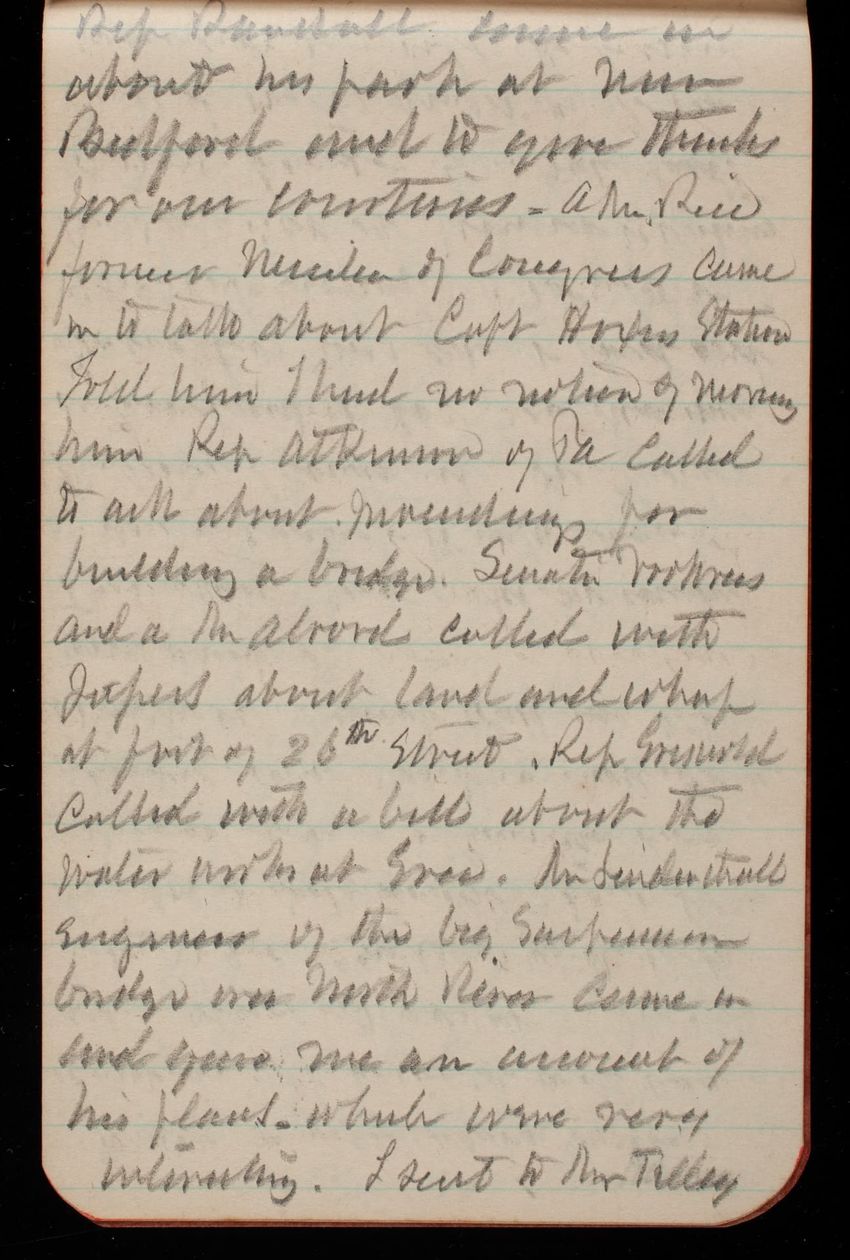 Rep Randall came in
about his park at New
Bedford and to give thanks
for our courtesies - A Mr. Rice
former Member of Congress came
in to talk about Capt Hoxies Station
Told him I had no notion of moving
him Rep Atkinson of Pa called
to ask about proceedings for
building a bridge. Senator Voorhees
and a Mr Alvord called with
papers about land and wharf
at foot of 26th Street. Rep Griswold
Called with a bill about the
Water works at Erie. Mr Lindenthall
Engineer of the big Suspension
bridge over North River Came in
and gave me an account of
his plans - which were very
interesting. I sent to Mr Tilley